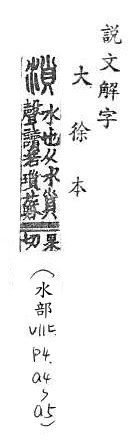 說文解字
大徐本
溑 水也从水𧴪聲讀若瑣蘇果切
（水部 V11上 P4. a4、a5）